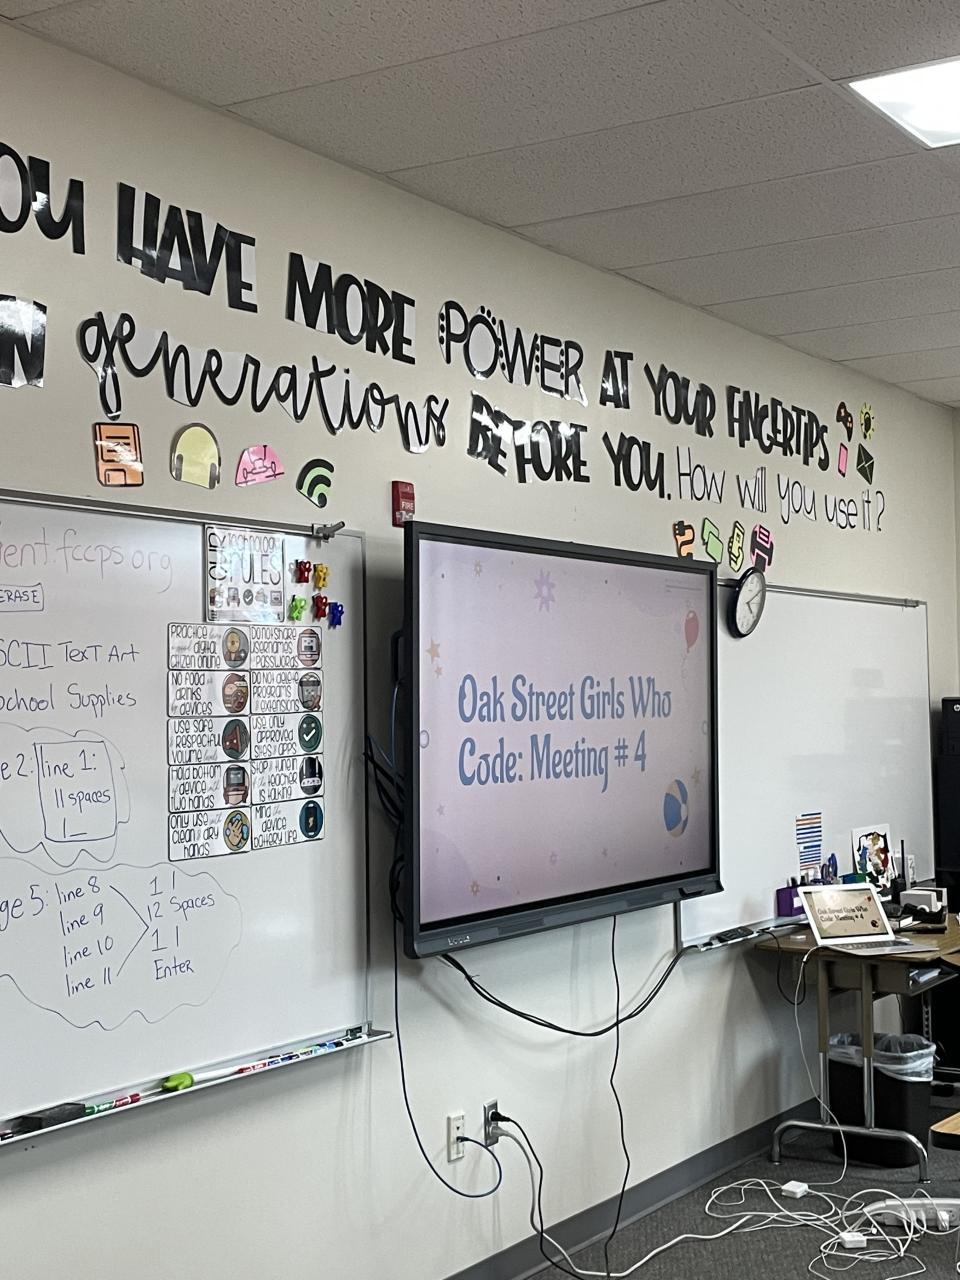 OU HAVE MORE POWER AT YOUR FINGERTIPS
N generations BEFORE YOU. How will you use it?
FIRE
ent.fccps.org
ERASE
SCII TexT Art
School Supplies
e 2: line 1:
11 spaces
1_
ge 5: line 8
line 9
line 10
line 11
1 1
12 Spaces
1 1
Enter
OUR technology RULES
PRACTICE being a good digital citizen online
DO NOT SHARE usernames & passwords
NO FOOD or drinks by devices
DO NOT delete PROGRAMS & extensions
USE SAFE & RESPECTFUL VOLUME levels
USE ONLY APPROVED sites & apps
HOLD BOTTOM of device with two hands
STOP & TUNE IN if the teacher is talking
ONLY USE with clean & dry hands
MIND the device battery life
Oak Street Girls Who
Code: Meeting # 4
Oak Street Girls Who
Code: Meeting # 4
hp